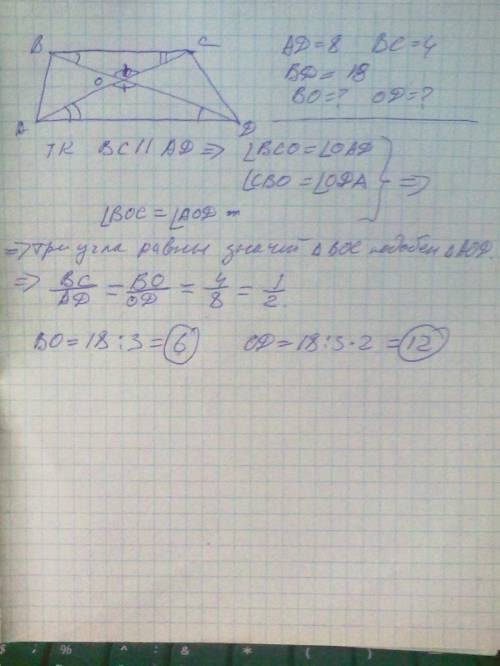 B C
O
A D
AD=8 BC=4
BD=18
BO=? OD=?
тк BC || AD => ∠BCO=∠OAD
∠CBO=∠ODA =>
∠BOC=∠AOD
=> три угла равны значит △BOC подобен △AOD.
=> BC/AD = BO/OD = 4/8 = 1/2
BO=18:3=6 OD=18:3·2=12
; % ^ : & * ( )